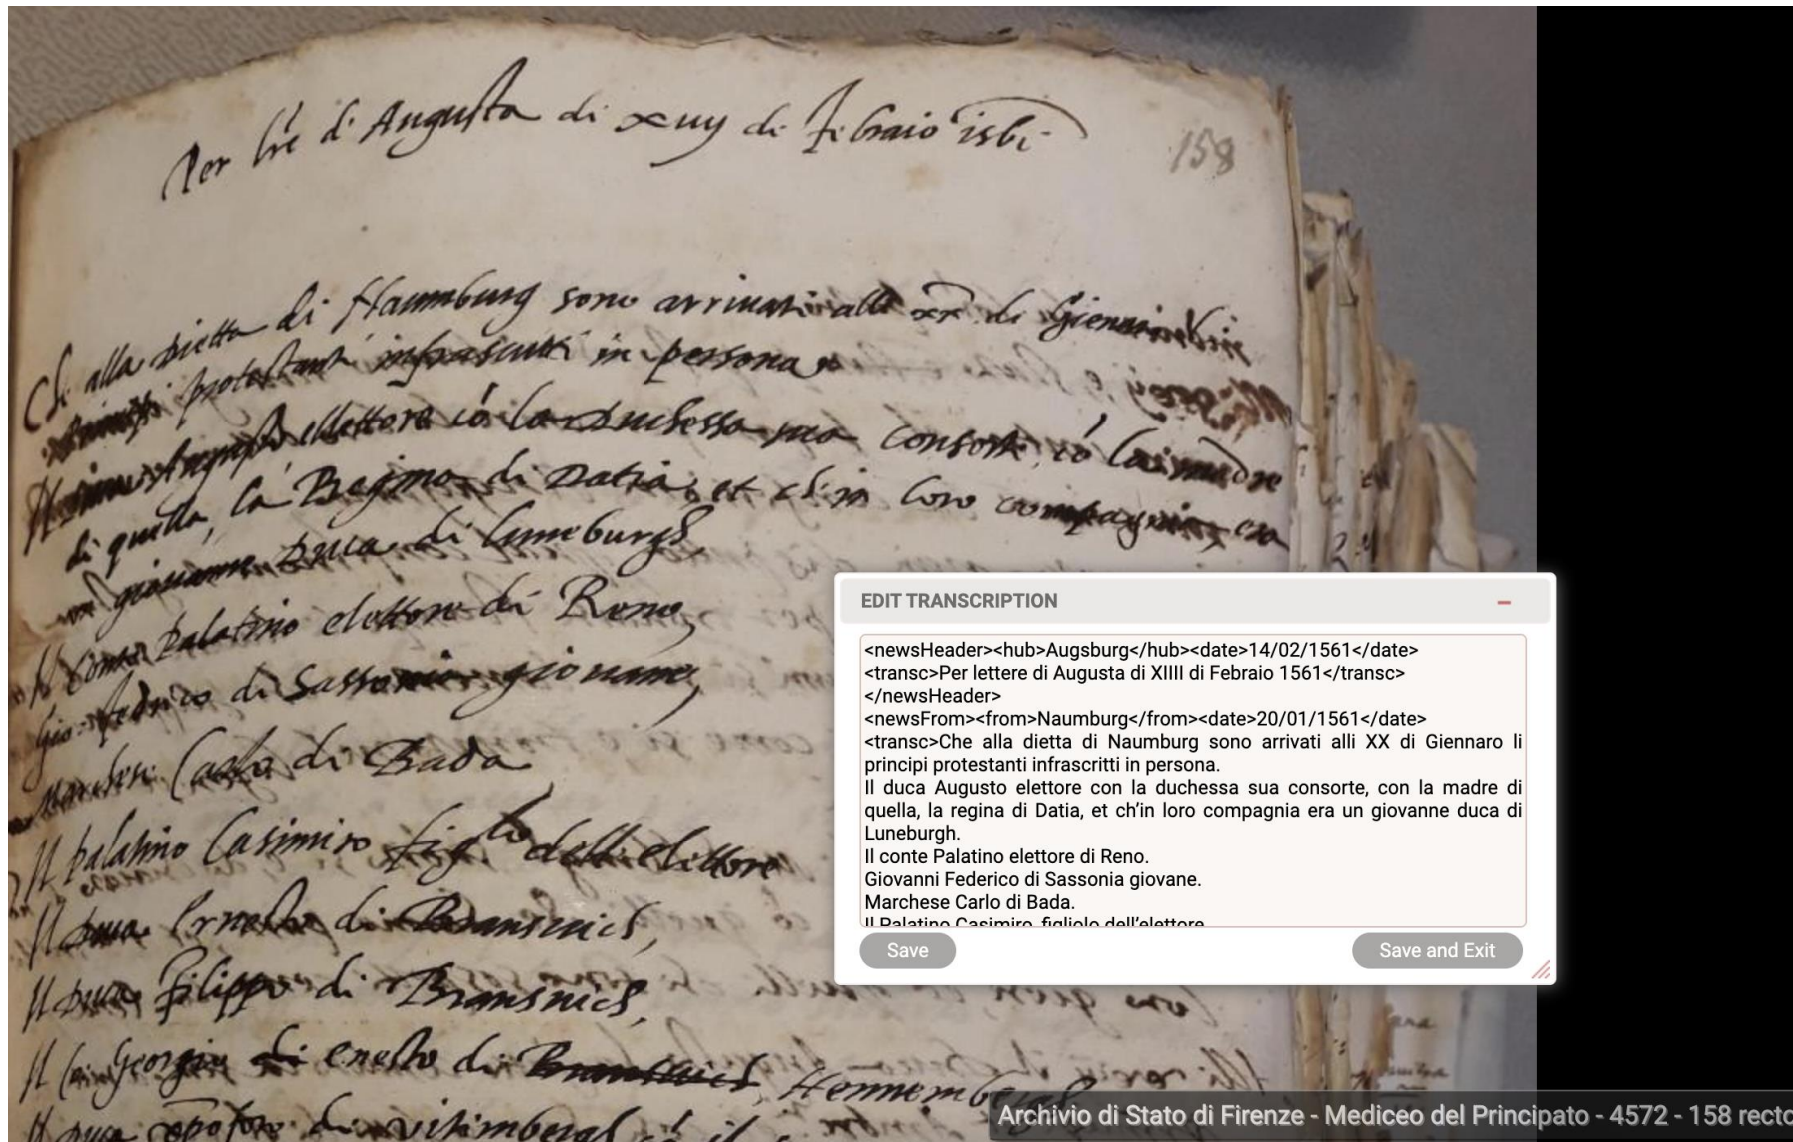 Per lrē di Augusta di xiiij di Febraio 1561
158
Che alla dietta di Naumburg sono arrivati alli xx di Giennaro li
principi protestanti infrascritti in persona
Il duca Augusto elettore cō la Duchessa sua consorte, cō la madre
di quella, la Regina di Datia, et ch'in loro compagnia era
un giovanne Duca di Luneburgh,
Il Conte Palatino elettore di Reno,
Gio: Fedrico di Sassonia giovane,
Marchese Carlo di Bada
Il palatino Casimiro figlo dell elettore
Il Duca Ernesto di Bransuich,
Il Duca Filippo di Bransuich,
Il Georgio enesto di Hennemberg
Il Duca di
EDIT TRANSCRIPTION
<newsHeader><hub>Augsburg</hub><date>14/02/1561</date>
<transc>Per lettere di Augusta di XIIII di Febraio 1561</transc>
</newsHeader>
<newsFrom><from>Naumburg</from><date>20/01/1561</date>
<transc>Che alla dietta di Naumburg sono arrivati alli XX di Giennaro li
principi protestanti infrascritti in persona.
Il duca Augusto elettore con la duchessa sua consorte, con la madre di
quella, la regina di Datia, et ch’in loro compagnia era un giovanne duca di
Luneburgh.
Il conte Palatino elettore di Reno.
Giovanni Federico di Sassonia giovane.
Marchese Carlo di Bada.
Il Palatino Casimiro, figliolo dell’elettore
Save
Save and Exit
Archivio di Stato di Firenze - Mediceo del Principato - 4572 - 158 recto